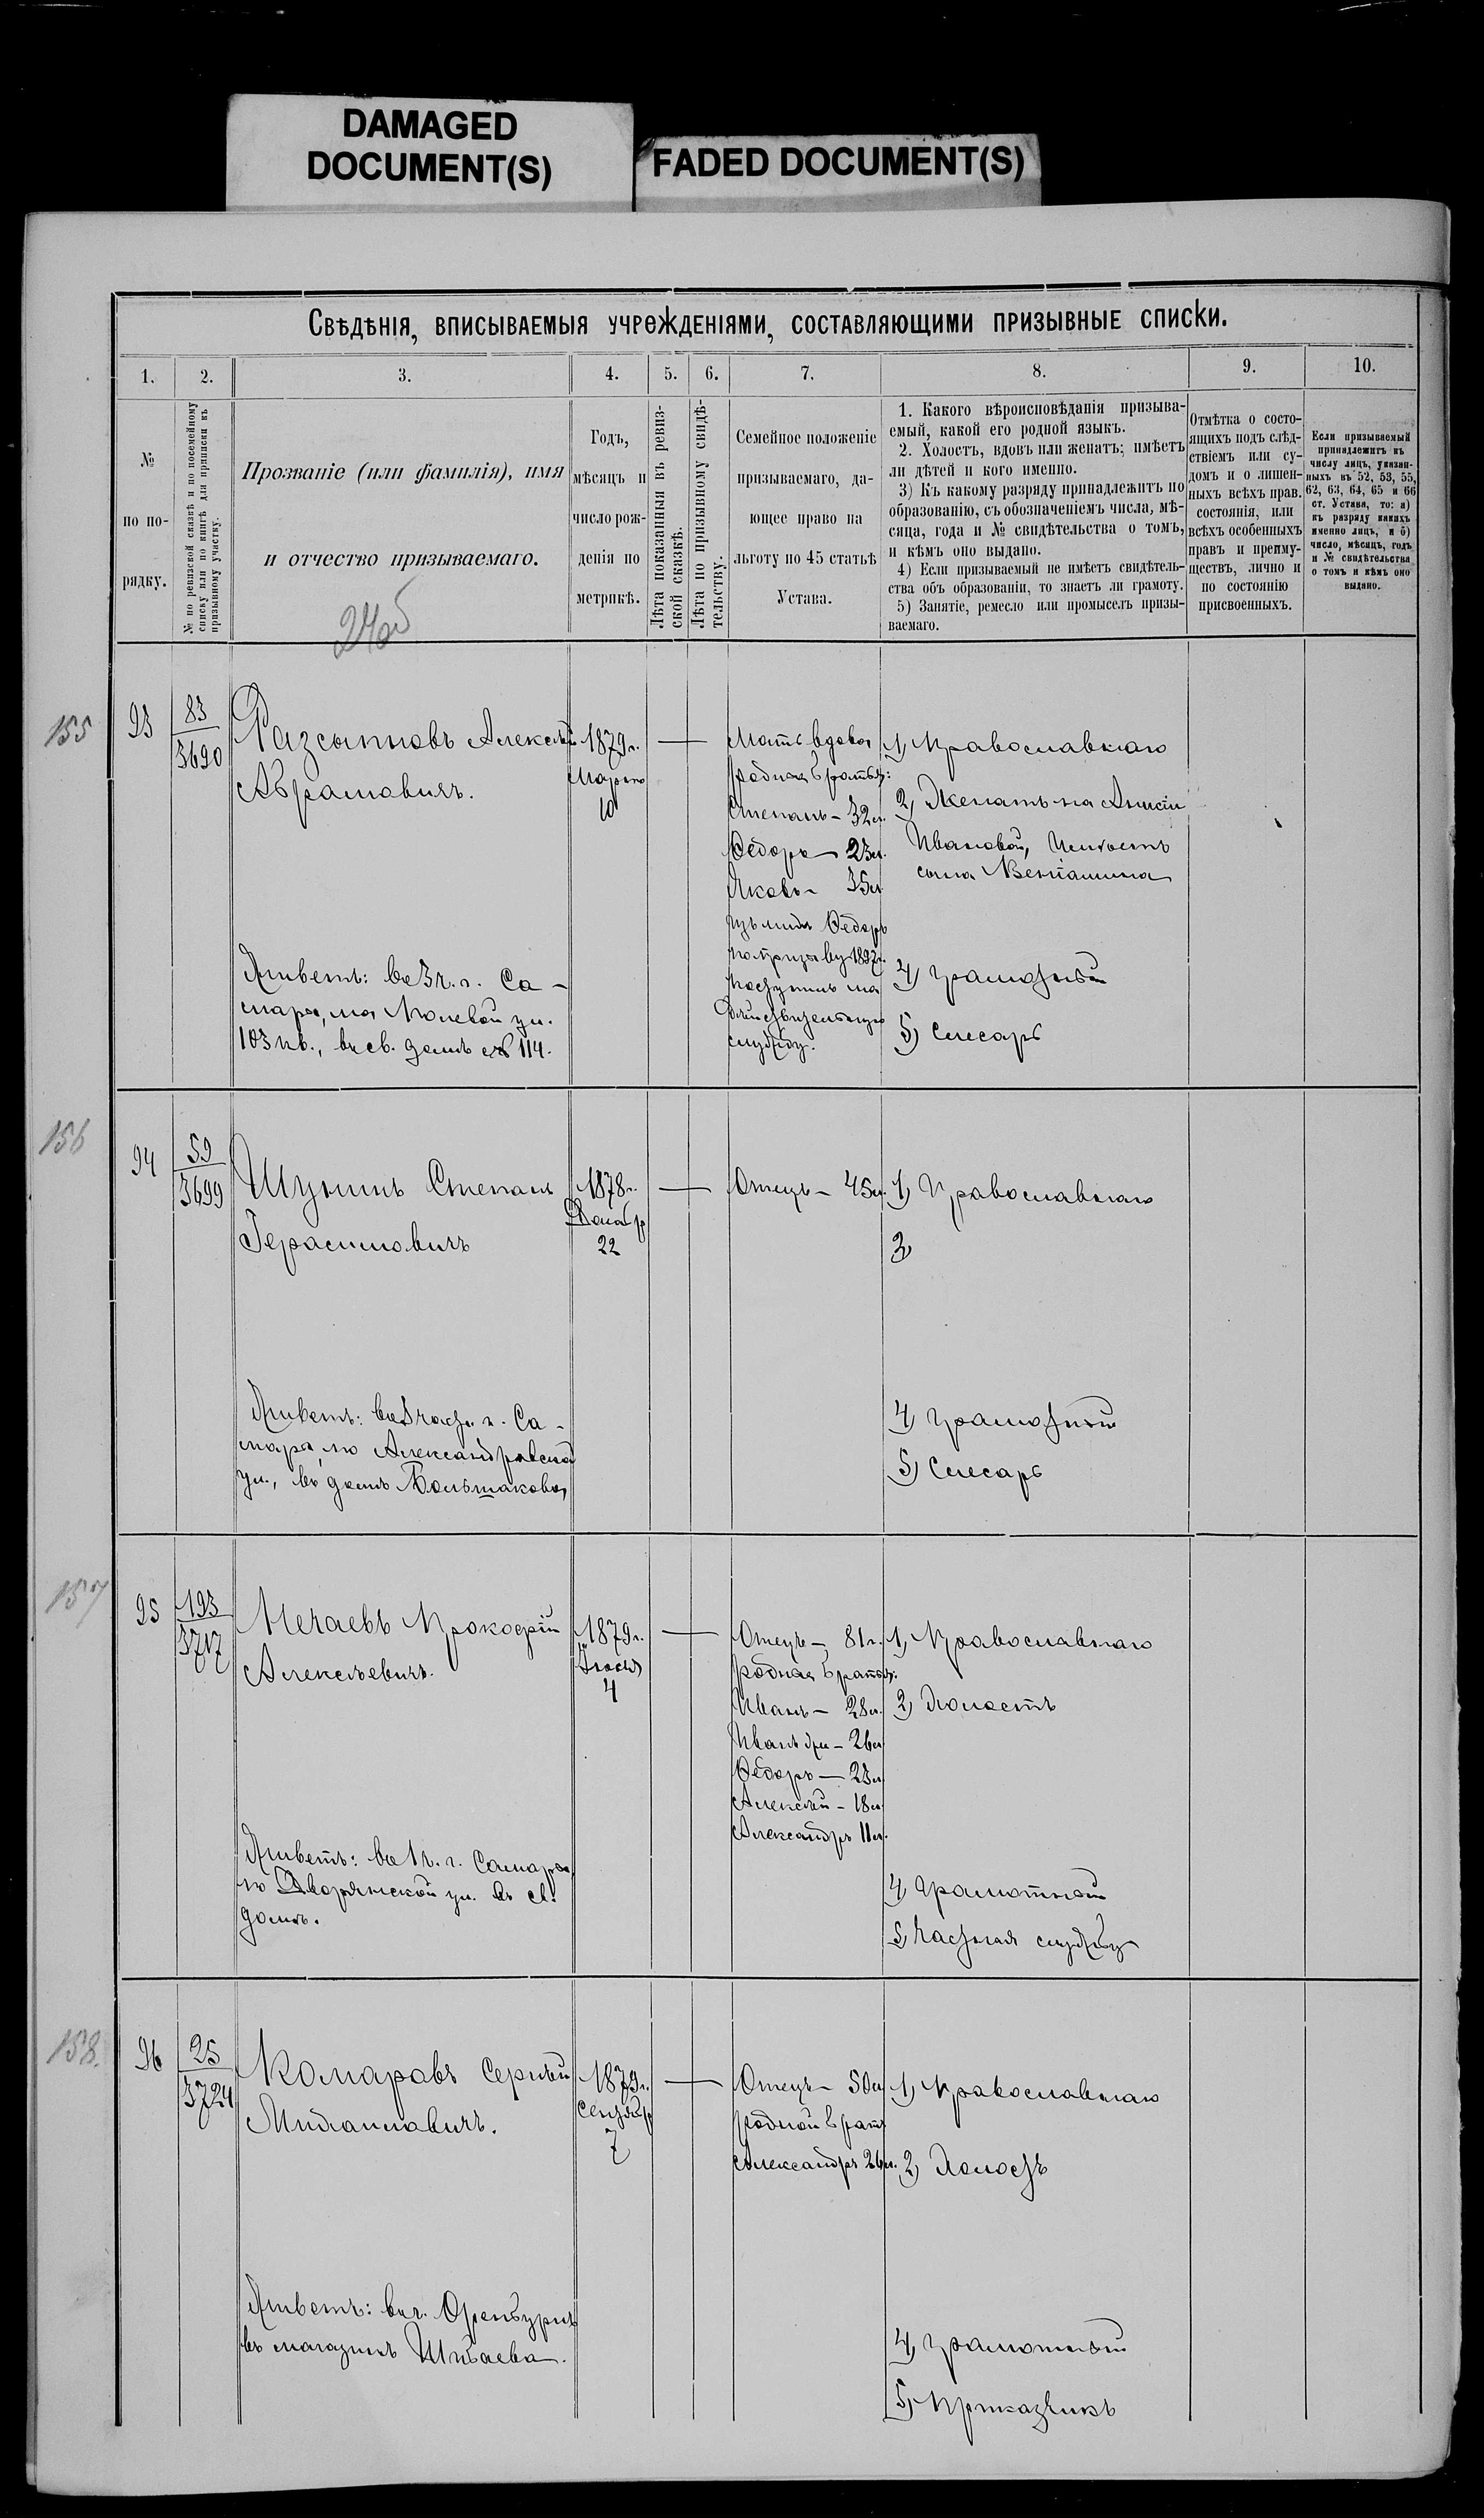 DAMAGED
DOCUMENT(S)
FADED DOCUMENT(S)
Свѣдѣнія, вписываемыя учрежденіями, составляющими призывные списки.
1.
2.
3.
4.
5.
6.
7.
8.
9.
10.
№
по по-
рядку.
№ по ревизской сказкѣ и по посемейному
списку или по книгѣ для приписки къ
призывному участку.
Прозваніе (или фамилія), имя
и отчество призываемаго.
Годъ,
мѣсяцъ и
число рож-
денія по
метрикѣ.
Лѣта показанныя въ ревиз-
ской сказкѣ.
Лѣта по призывному свидѣ-
тельству.
Семейное положеніе
призываемаго, да-
ющее право на
льготу по 45 статьѣ
Устава.
1. Какого вѣроисповѣданія призыва-
емый, какой его родной языкъ.
2. Холостъ, вдовъ или женатъ; имѣетъ
ли дѣтей и кого именно.
3) Къ какому разряду принадлежитъ по
образованію, съ обозначеніемъ числа, мѣ-
сяца, года и № свидѣтельства о томъ,
и кѣмъ оно выдано.
4) Если призываемый не имѣетъ свидѣтель-
ства объ образованіи, то знаетъ ли грамоту.
5) Занятіе, ремесло или промыселъ призы-
ваемаго.
Отмѣтка о состо-
ящихъ подъ слѣд-
ствіемъ или су-
домъ и о лишен-
ныхъ всѣхъ прав.
состоянія, или
всѣхъ особенныхъ
правъ и преиму-
ществъ, лично и
по состоянію
присвоенныхъ.
Если призываемый
принадлежитъ къ
числу лицъ, указан-
ныхъ въ 52, 53, 55,
62, 63, 64, 65 и 66
ст. Устава, то: а)
къ разряду какихъ
именно лицъ, и б)
число, мѣсяцъ, годъ
и № свидѣтельства
о томъ и кѣмъ оно
выдано.
155
93
83
3690
Разсыпновъ Алексѣй
Абрамовичъ.
Живетъ: въ 3 ч. г. Са-
мары, на Полевой ул.
103 кв., въ св. домѣ № 114.
1879 г.
Марта
10
Мать вдова
родные братья:
Степанъ – 32 л.
Ѳедоръ – 23 л.
Яковъ – 35 л.
изъ нихъ Ѳедоръ
по призыву 1897 г.
поступилъ на
дѣйствительную
службу.
1) Православнаго
2) Женатъ на Анисіи
Ивановой, имѣетъ
сына Веніамина
4) грамотный
5) Слесарь
156
94
59
3699
Шунинъ Степанъ
Герасимовичъ
Живетъ: въ 3 част. г. Са-
мары, по Александровской
ул., въ домѣ Большакова,
1878 г.
Декабр
22
Отецъ – 45 л.
1) Православнаго
2)
4) грамотный
5) Слесарь
157
95
193
3717
Нечаевъ Прокофій
Алексѣевичъ.
Живетъ: въ 1 ч. г. Самары
по Дворянской ул. въ св.
домѣ.
1879 г.
4
Отецъ – 81 г.
родные братья:
Иванъ – 28 л.
Иванъ др – 26 л
Ѳедоръ – 23 л
Алексѣй – 18 л
Александръ 11 л.
1) Православнаго
2) Холостъ
4) Грамотный
5) Частная служба
158.
96
25
3724
Комаровъ Сергѣй
Михайловичъ.
Живетъ: въ г. Оренбургѣ
въ магазинѣ Шибаева.
1879 г.
Сентябр
7
Отецъ – 50 л
родной братъ
Александръ 26 л.
1) Православнаго
2) Холостъ
4) грамотный
5) Приказчикъ